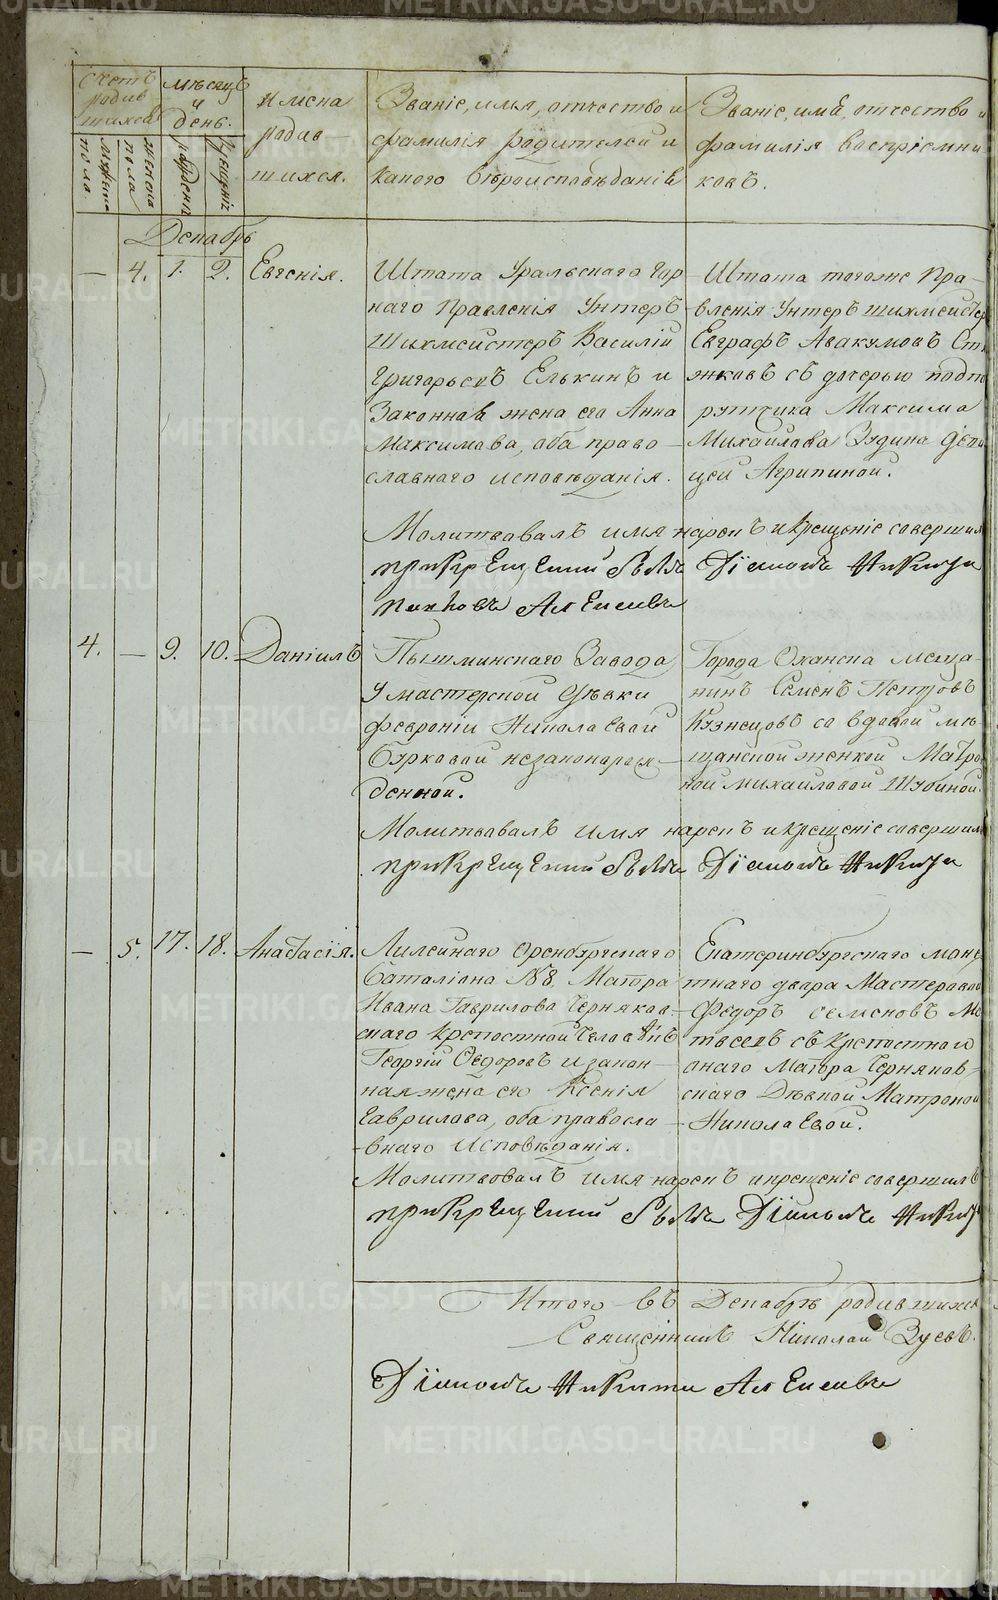 Счетъ родив шихся
мѣсяцъ и день.
Имена родив шихся.
Званіе, имя, отчество и фамилія родителей и какого вѣроисповѣданія
Званіе, имя, отчество и фамилія воспріемни ковъ.
мужеска пола
женска пола
рожденія
крещенія
Декабрь
— 4. 1. 2. Евгенія.
Штата Уральскаго Гор
наго Правленія Унтеръ
Шихмейстеръ Василій
Григорьевъ Елькинъ и
Законная жена его Анна
Максимова, оба право
славнаго исповѣданія.
Штата тогоже Пра
вленія Унтеръ шихмейстер
Евграфъ Авакумовъ
жковъ съ дочерью подпо
ручика Максима
Михайлова Зудина дѣви
цей Агрипиной.
Молитвовалъ имя нарекъ и крещеніе совершил
при крещении былъ Діаконъ Никита
Алексиевъ
4. — 9. 10. Даніилъ
Пышминскаго Завода
у мастерской дѣвки
Февроніи Николаевой
Бурковой незаконорож
денной.
Города Оханска меща
нинъ Семенъ Петровъ
Кузнецовъ со вдовой мѣ
щанской женкой Матро
ной Михайловой Шубиной.
Молитвовалъ имя нарекъ и крещеніе совершил
при крещении былъ Діаконъ Никита
— 5. 17. 18. Анастасія.
Линейнаго Оренбургскаго
баталіона №8. Маіора
Ивана Гаврилова Черняков
скаго крепостной человѣкъ
Георгій Ѳедоровъ и закон
ная жена его Ксенія
Гаврилова, оба правосла
внаго исповѣданія.
Екатеринбургскаго моне
тнаго двора Мастеровой
Федоръ Семеновъ
съ крѣпостной
онаго Маіора Черняков
скаго Дѣвкой Матроной
Николаевой.
Молитвовалъ имя нарекъ и крещеніе совершилъ
при крещении былъ Діаконъ Никита
Итого въ Декабрѣ родившихся
Священникъ Николай Зуевъ.
Діаконъ Никита Алексиевъ
METRIKI.GASO-URAL.RU